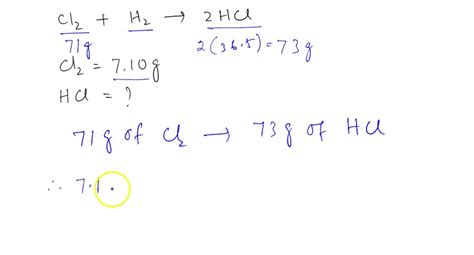 Cl₂ + H₂ → 2HCl
71g 2(36.5)=73g
Cl₂ = 7.10g
HCl = ?
71g of Cl₂ → 73g of HCl
∴ 7.1